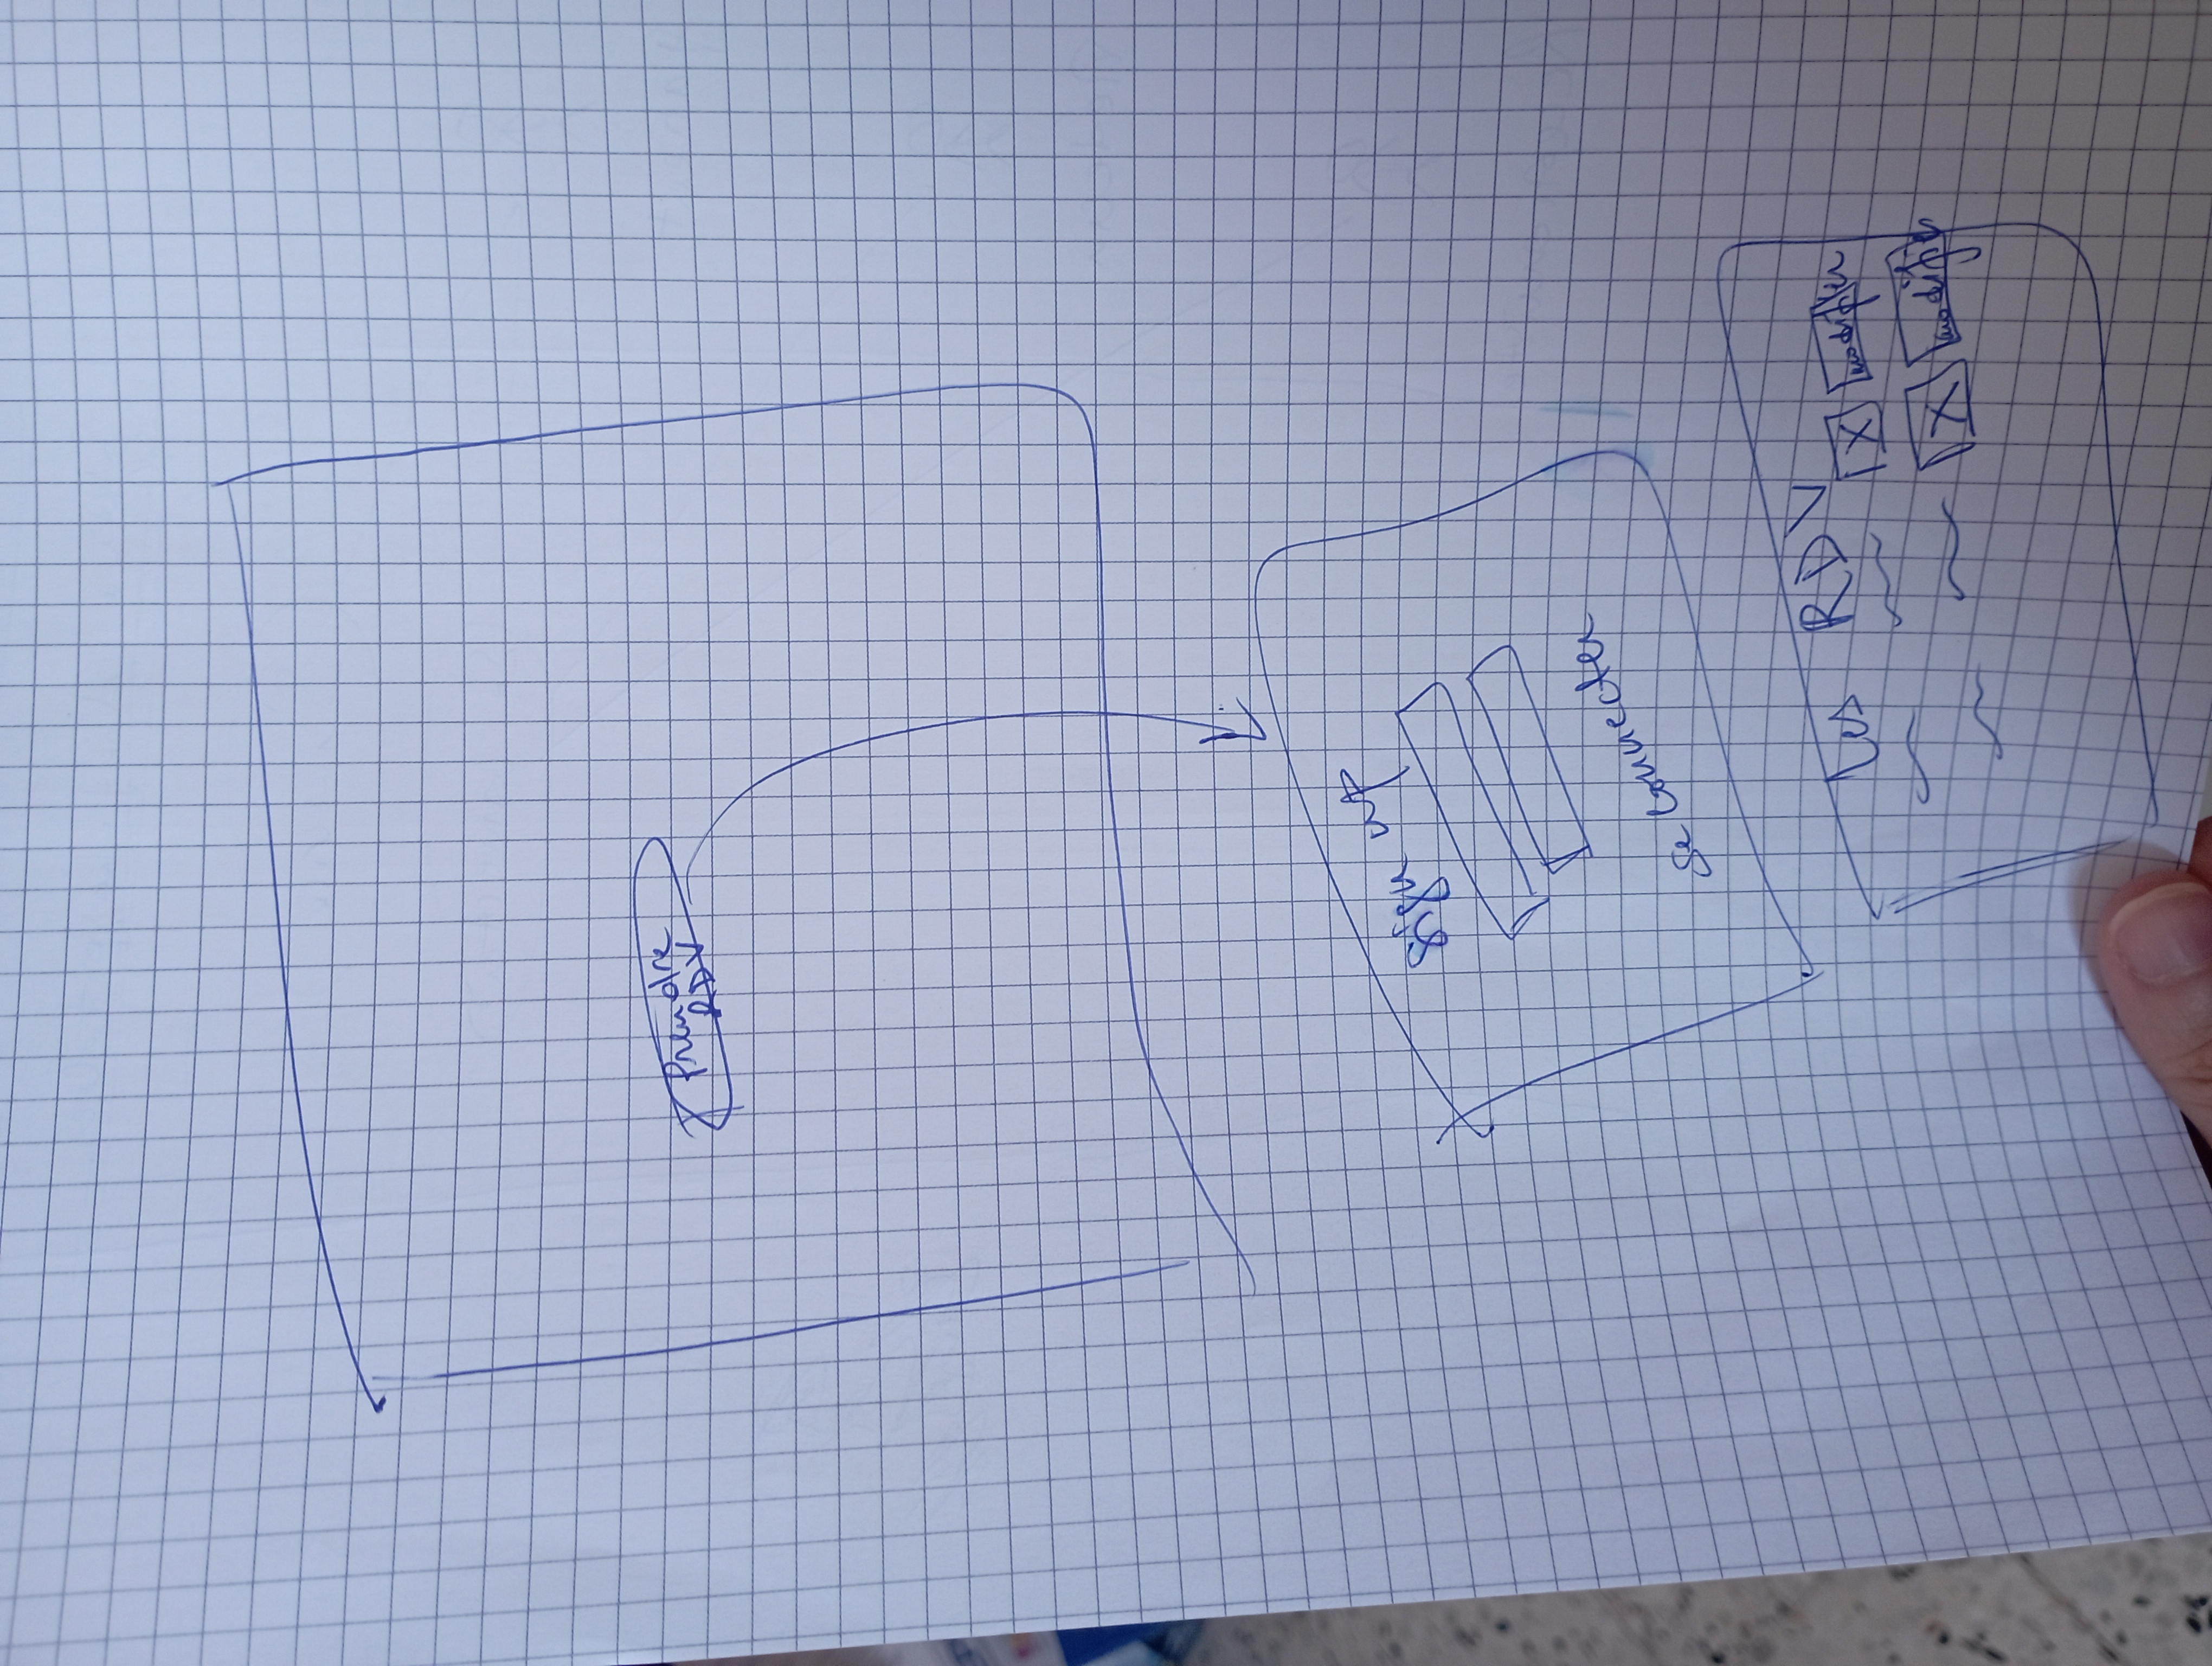 Prendre
RDV
sign up
se connecter
Les RDV
X modifier
X modifier